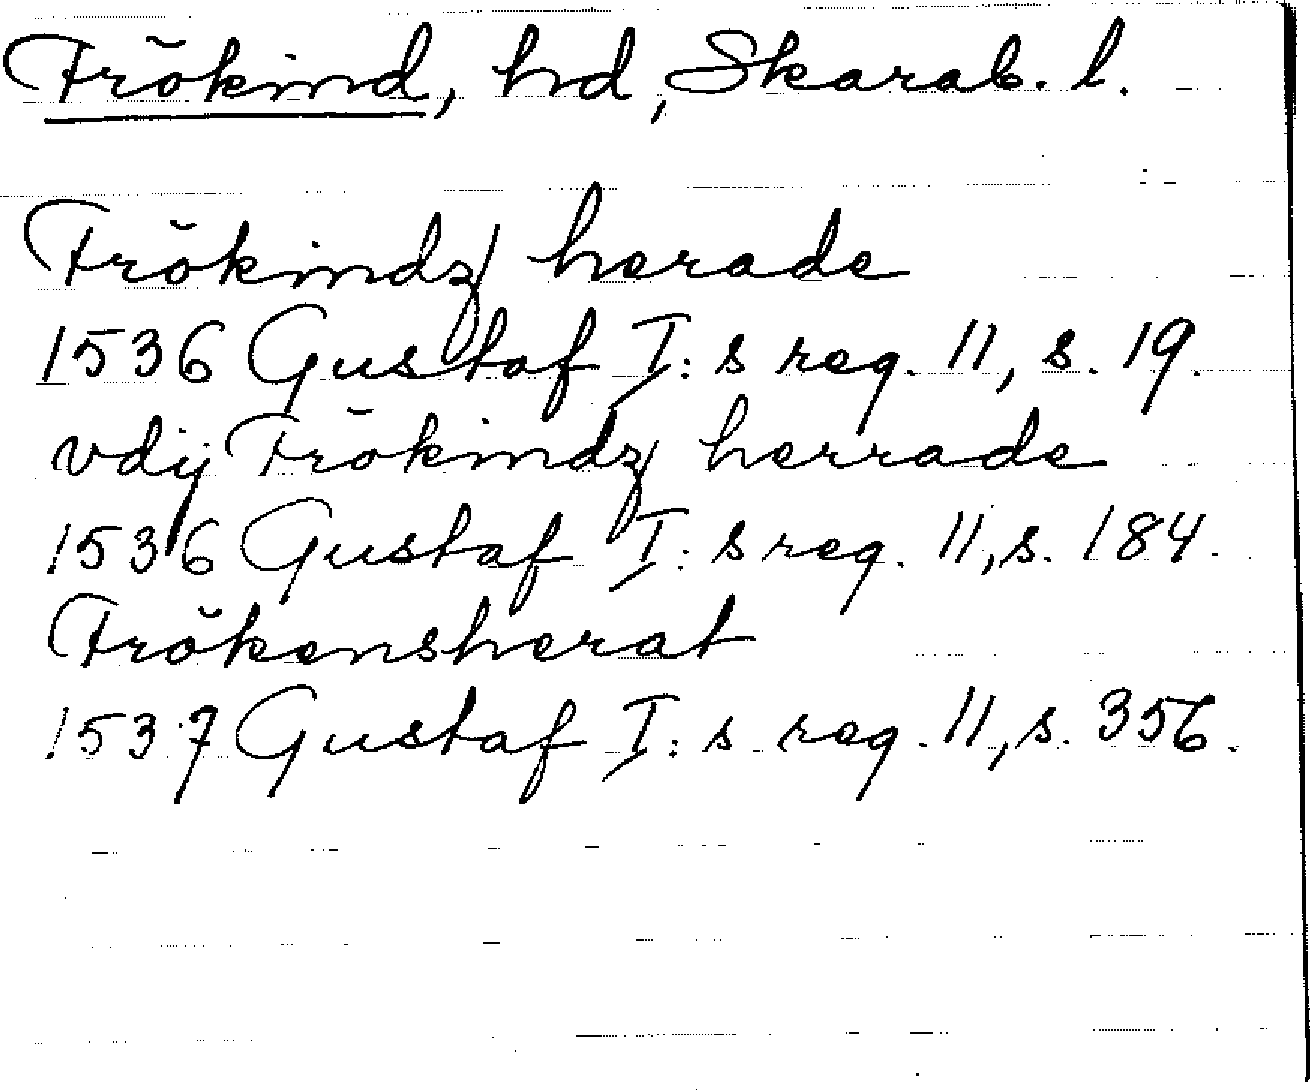 Frökind, hd, Skarab. l.
Frökindz herade
1536 Gustaf I:s reg. 11, s. 19.
vdij Frökindz herrade
1536 Gustaf I:s reg. 11, s. 184.
Frökensherat
1537 Gustaf I:s reg. 11, s. 356.